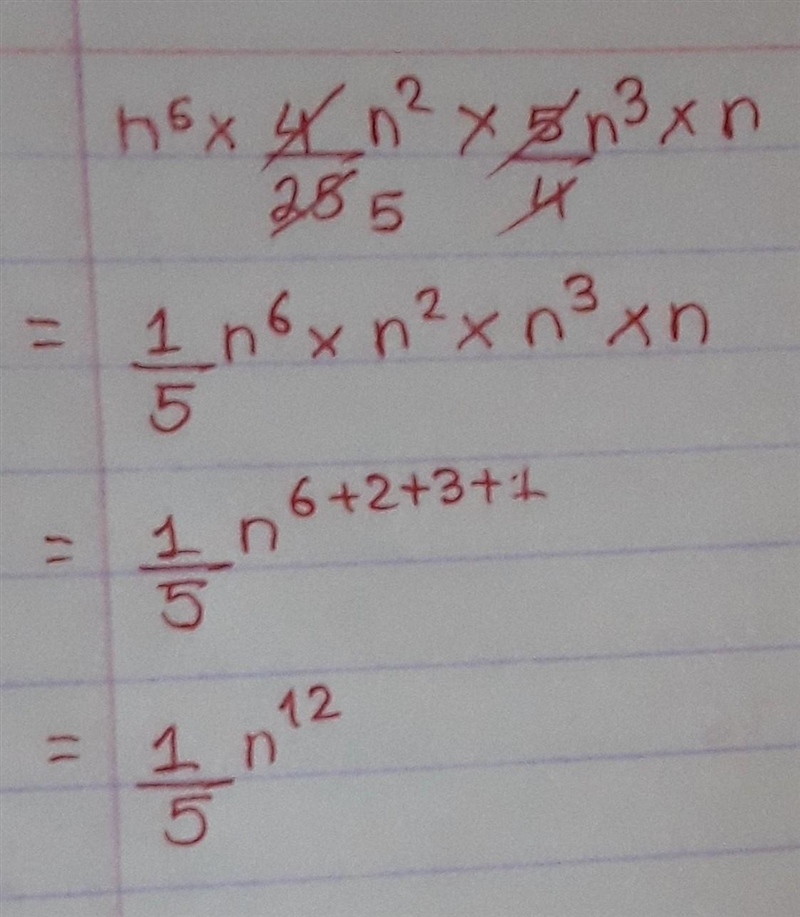 n⁶ × 4/25 5 n² × 5/4 n³ × n
= 1/5 n⁶ × n² × n³ × n
= 1/5 n⁶⁺²⁺³⁺¹
= 1/5 n¹²